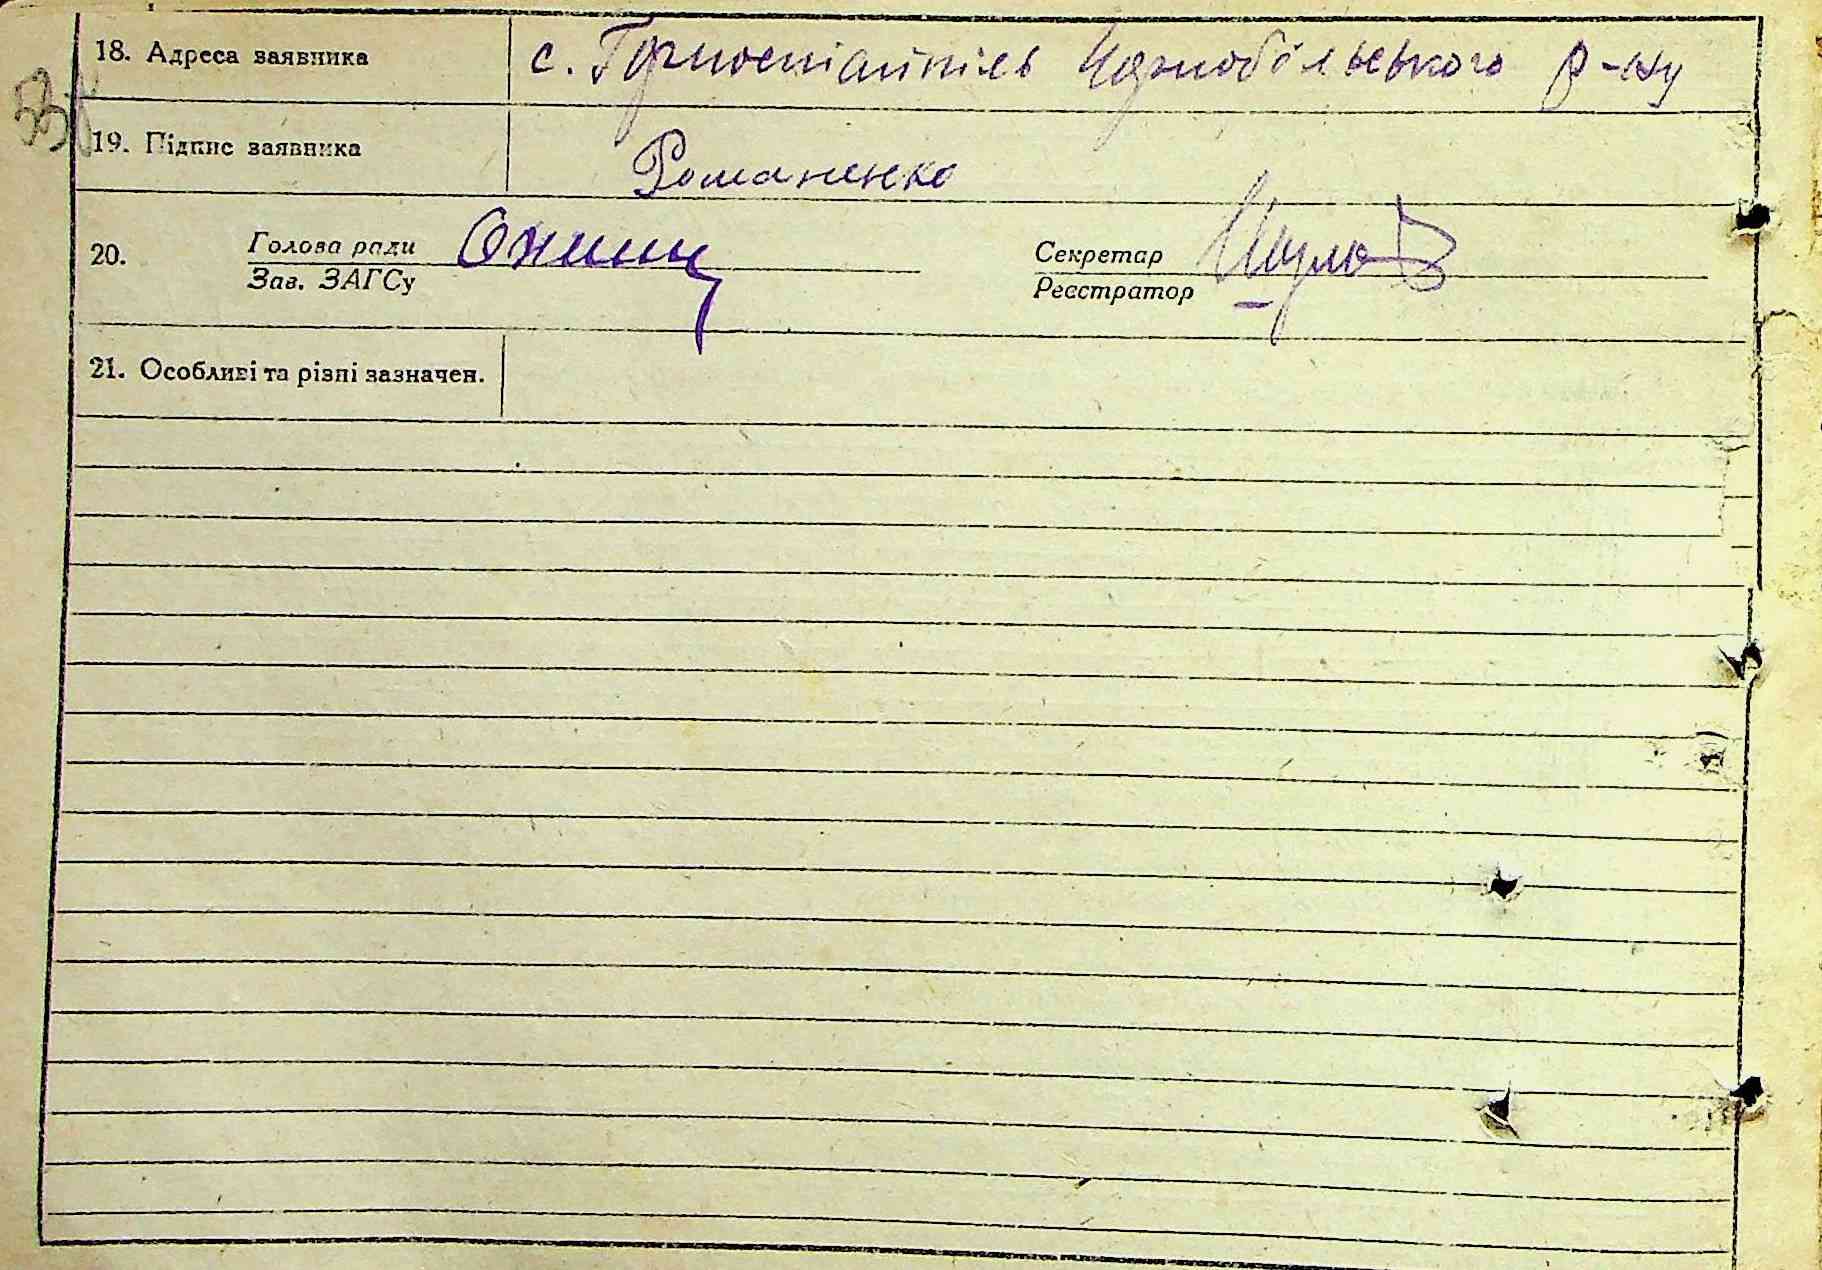 18. Адреса заявника с. Горностайпіль Чорнобільського р-ну
53
19. Підпис заявника Романенко
20. Голова ради Секретар
Зав. ЗАГСу Реєстратор
21. Особливі та різні зазначен.